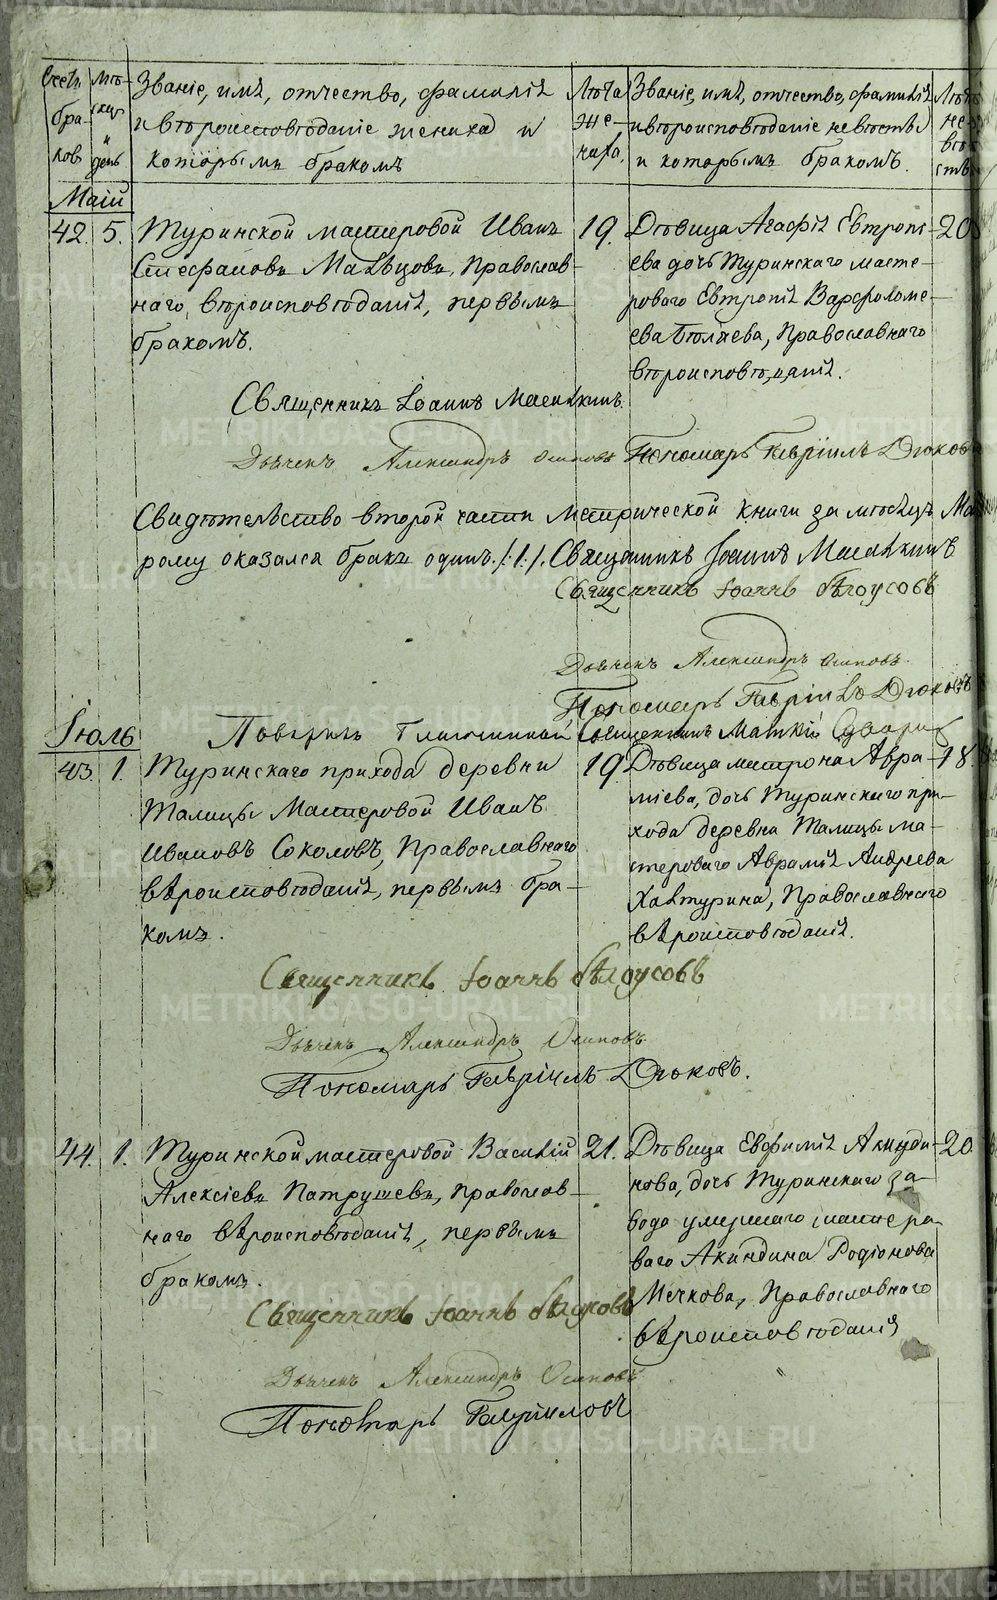 Счетъ браковъ
Мѣсяцъ и день
Званіе, имя, отчество, фамилія
и вѣроисповѣданіе жениха и
которымъ бракомъ
Лѣта жениха.
Званіе, имя, отчество, фамилія
и вѣроисповѣданіе невѣсты
и которымъ бракомъ.
Лѣта невѣсты
Маій
42. 5. Туринской мастеровой Иванъ 19. Дѣвица Агафія Евтропі- 20
Стефановъ Мальцовъ, Православ- ева дочь Туринскаго масте-
наго вѣроисповѣданія, первымъ роваго Евтропія Варфоломе-
бракомъ. ева Бѣляева, Православнаго
вѣроисповѣданія.
Священникъ Іоаннъ
Дьячекъ Александръ Осиповъ Пономарь Гавріилъ Дюковъ
Свидѣтельство второй части метрической книги за мѣсяцъ Ма
рому оказался бракъ одинъ. /:1:/. Священникъ Іоаннъ
Священникъ Іоаннъ Бѣлоусовъ
Дьячекъ Александръ Осиповъ.
Пономарь Гавріилъ Дюковъ
Іюль Повѣрялъ Благочинный Священникъ
43. 1. Туринскаго прихода деревни 19. Дѣвица Матрона Авра- 18.
Талицы Мастеровой Иванъ міева, дочь Туринскаго при-
Ивановъ Соколовъ, Православнаго хода деревни Талицы ма-
вѣроисповѣданія, первымъ бра- стероваго Аврамія Андреева
комъ. Хактурина, Православнаго
вѣроисповѣданія.
Священникъ Іоаннъ Бѣлоусовъ
Дьячекъ Александръ Осиповъ
Пономарь Гавріилъ Дюковъ.
44. 1. Туринской мастеровой Василій 21. Дѣвица Евфимія Акинди- 20.
Алексіевъ Патрушевъ, Православ- нова, дочь Туринскаго за-
наго вѣроисповѣданія, первымъ вода умершаго мастеро-
бракомъ. ваго Акиндина Родіонова
Мечкова, Православнаго
вѣроисповѣданія
Священникъ Іоаннъ Бѣлоусовъ
Дьячекъ Александръ Осиповъ
Пономарь
METRIKI.GASO-URAL.RU